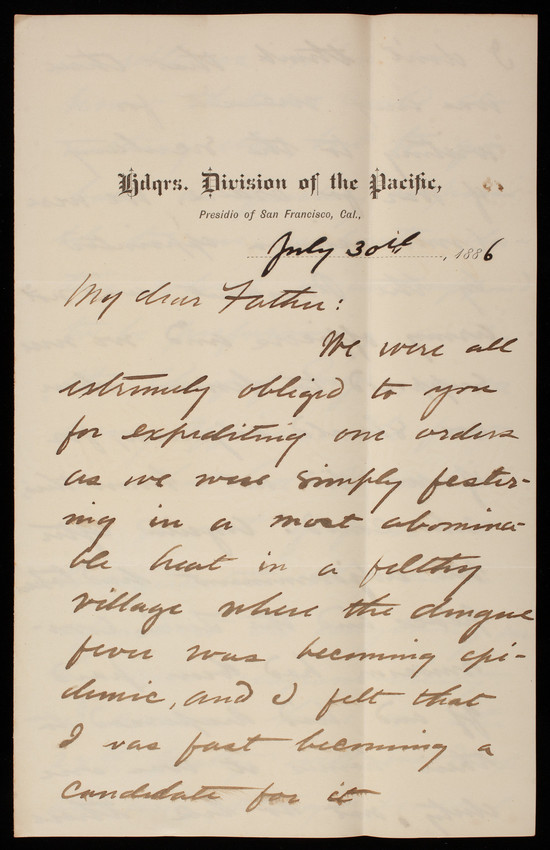 Hdqrs. Division of the Pacific,
Presidio of San Francisco, Cal.,
July 30th, 1886
My dear Father:
We were all
extremely obliged to you
for expediting our orders
as we were simply fester-
ing in a most abomina-
ble heat in a filthy
village where the dengue
fever was becoming epi-
demic, and I felt that
I was fast becoming a
candidate for it